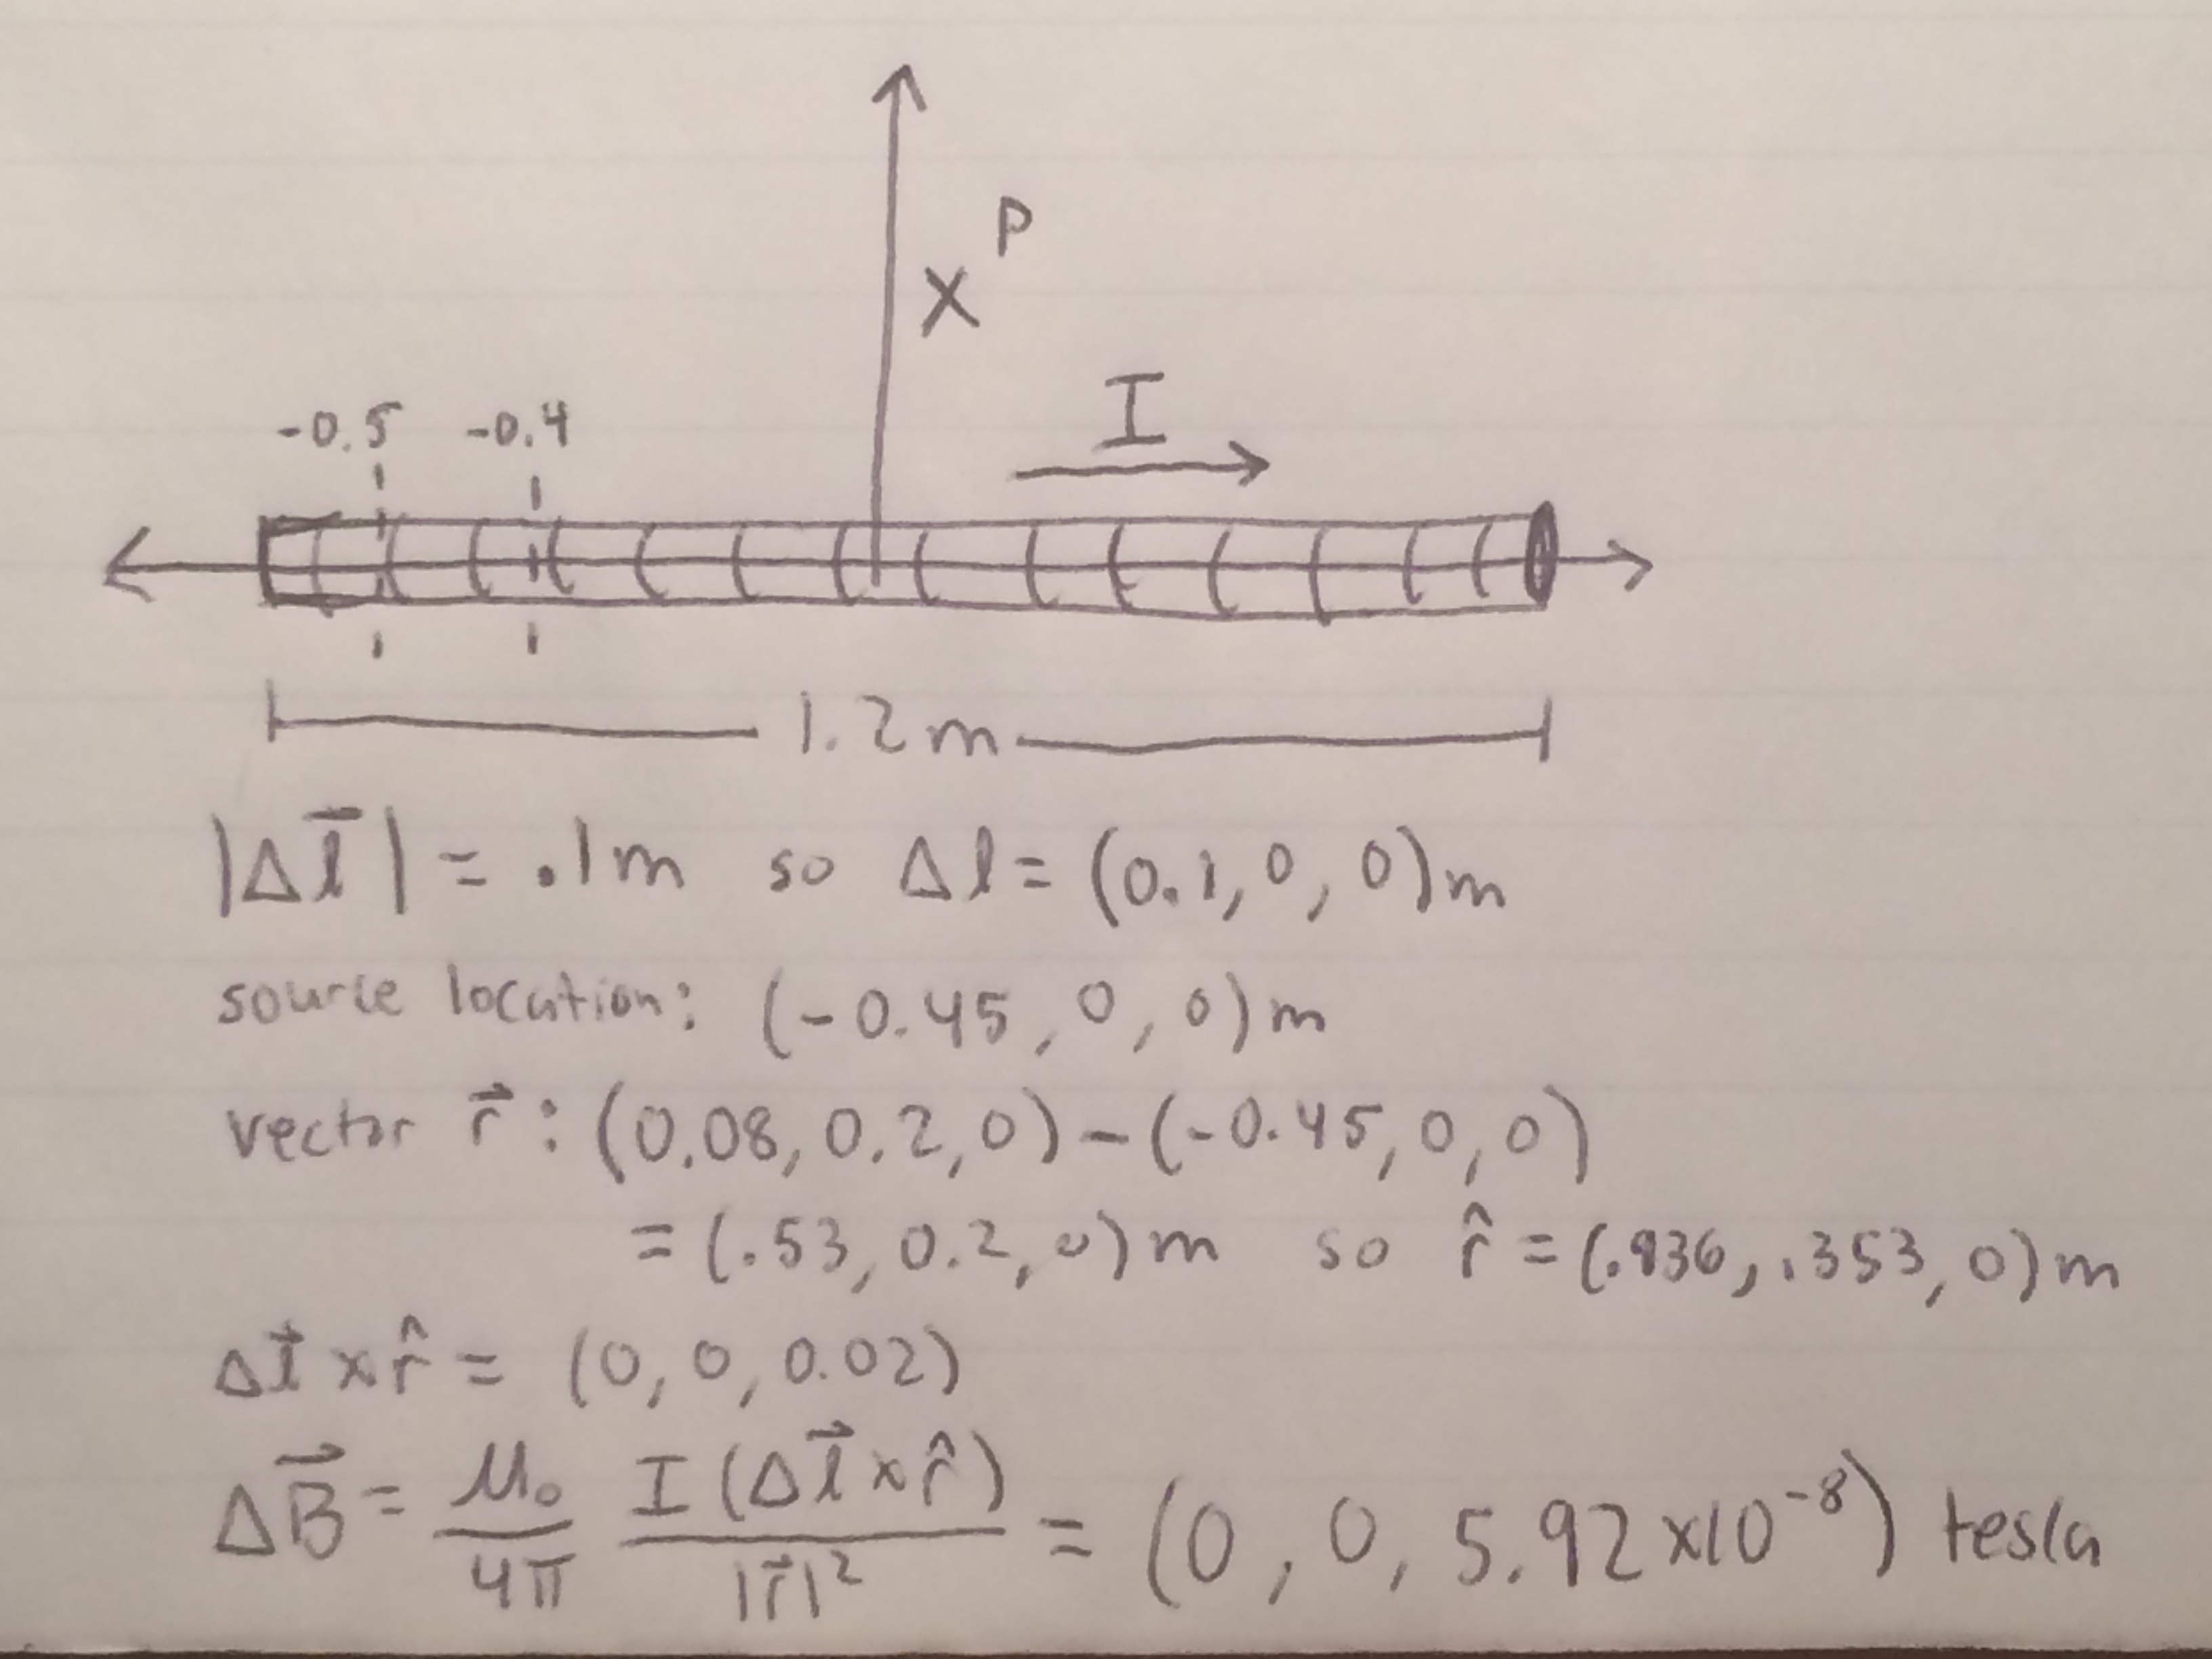 P
X
I
-0.5 -0.4
1.2m
|Δl⃗| = .1m so Δl = (0.1, 0, 0)m
source location: (-0.45, 0, 0)m
vector r⃗ : (0.08, 0.2, 0) - (-0.45, 0, 0)
= (.53, 0.2, 0)m so r̂ = (.936, .353, 0)m
Δl⃗ x r̂ = (0, 0, 0.02)
ΔB⃗ = μ₀/4π I(Δl⃗ x r̂)/|r⃗|² = (0, 0, 5.92x10⁻⁸) tesla